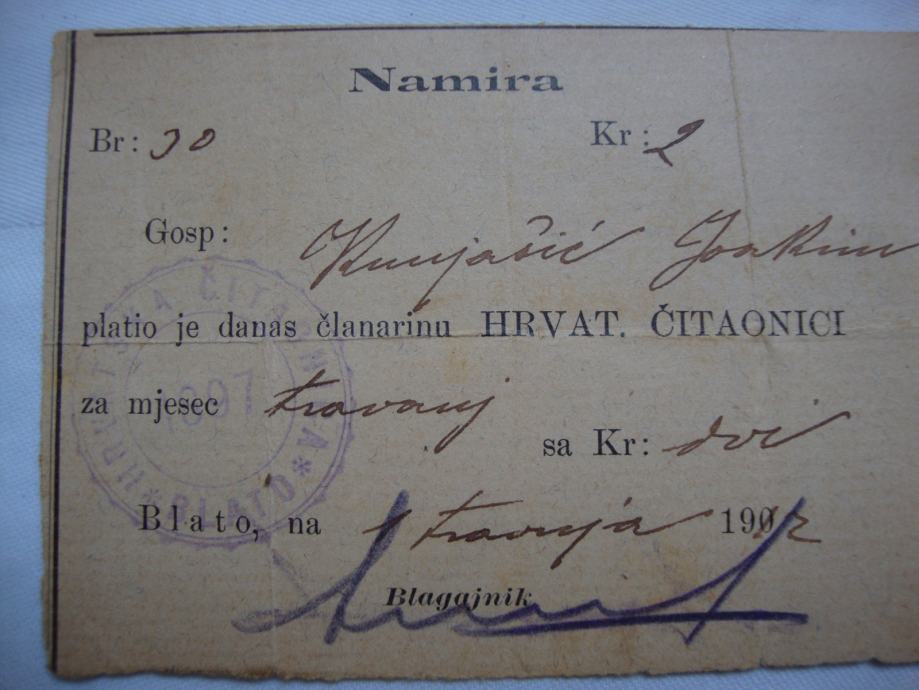 Namira
Br: 30 Kr: 2
Gosp: Kunjašić Joakim
platio je danas članarinu HRVAT. ČITAONICI
za mjesec travanj
sa Kr: dvi
Blato, na 1 travnja 1902
Blagajnik
HRVATSKA ČITAONICA * BLATO *
1897